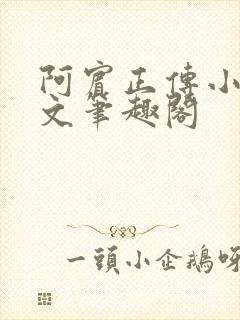 阿賓正傳小
文筆趣閣
一頭小企鵝呀